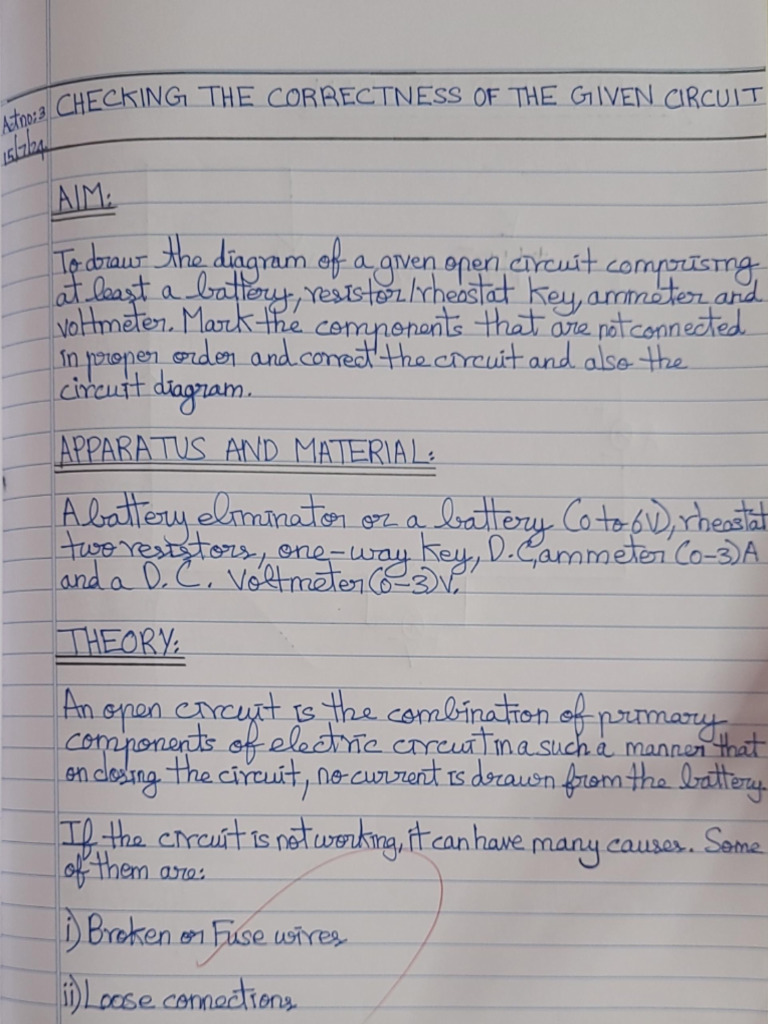 Act no: 3
15/7/24
CHECKING THE CORRECTNESS OF THE GIVEN CIRCUIT
AIM:
To draw the diagram of a given open circuit comprising
at least a battery, resistor/rheostat key, ammeter and
voltmeter. Mark the components that are not connected
in proper order and correct the circuit and also the
circuit diagram.
APPARATUS AND MATERIAL:
A battery eliminator or a battery (0 to 6V), rheostat
two resistors, one-way key, D.C, ammeter (0-3)A
and a D.C. Voltmeter (0-3)V.
THEORY:
An open circuit is the combination of primary
components of electric circuit in a such a manner that
on closing the circuit, no current is drawn from the battery.
If the circuit is not working, it can have many causes. Some
of them are:
i) Broken or Fuse wires
ii) Loose connections